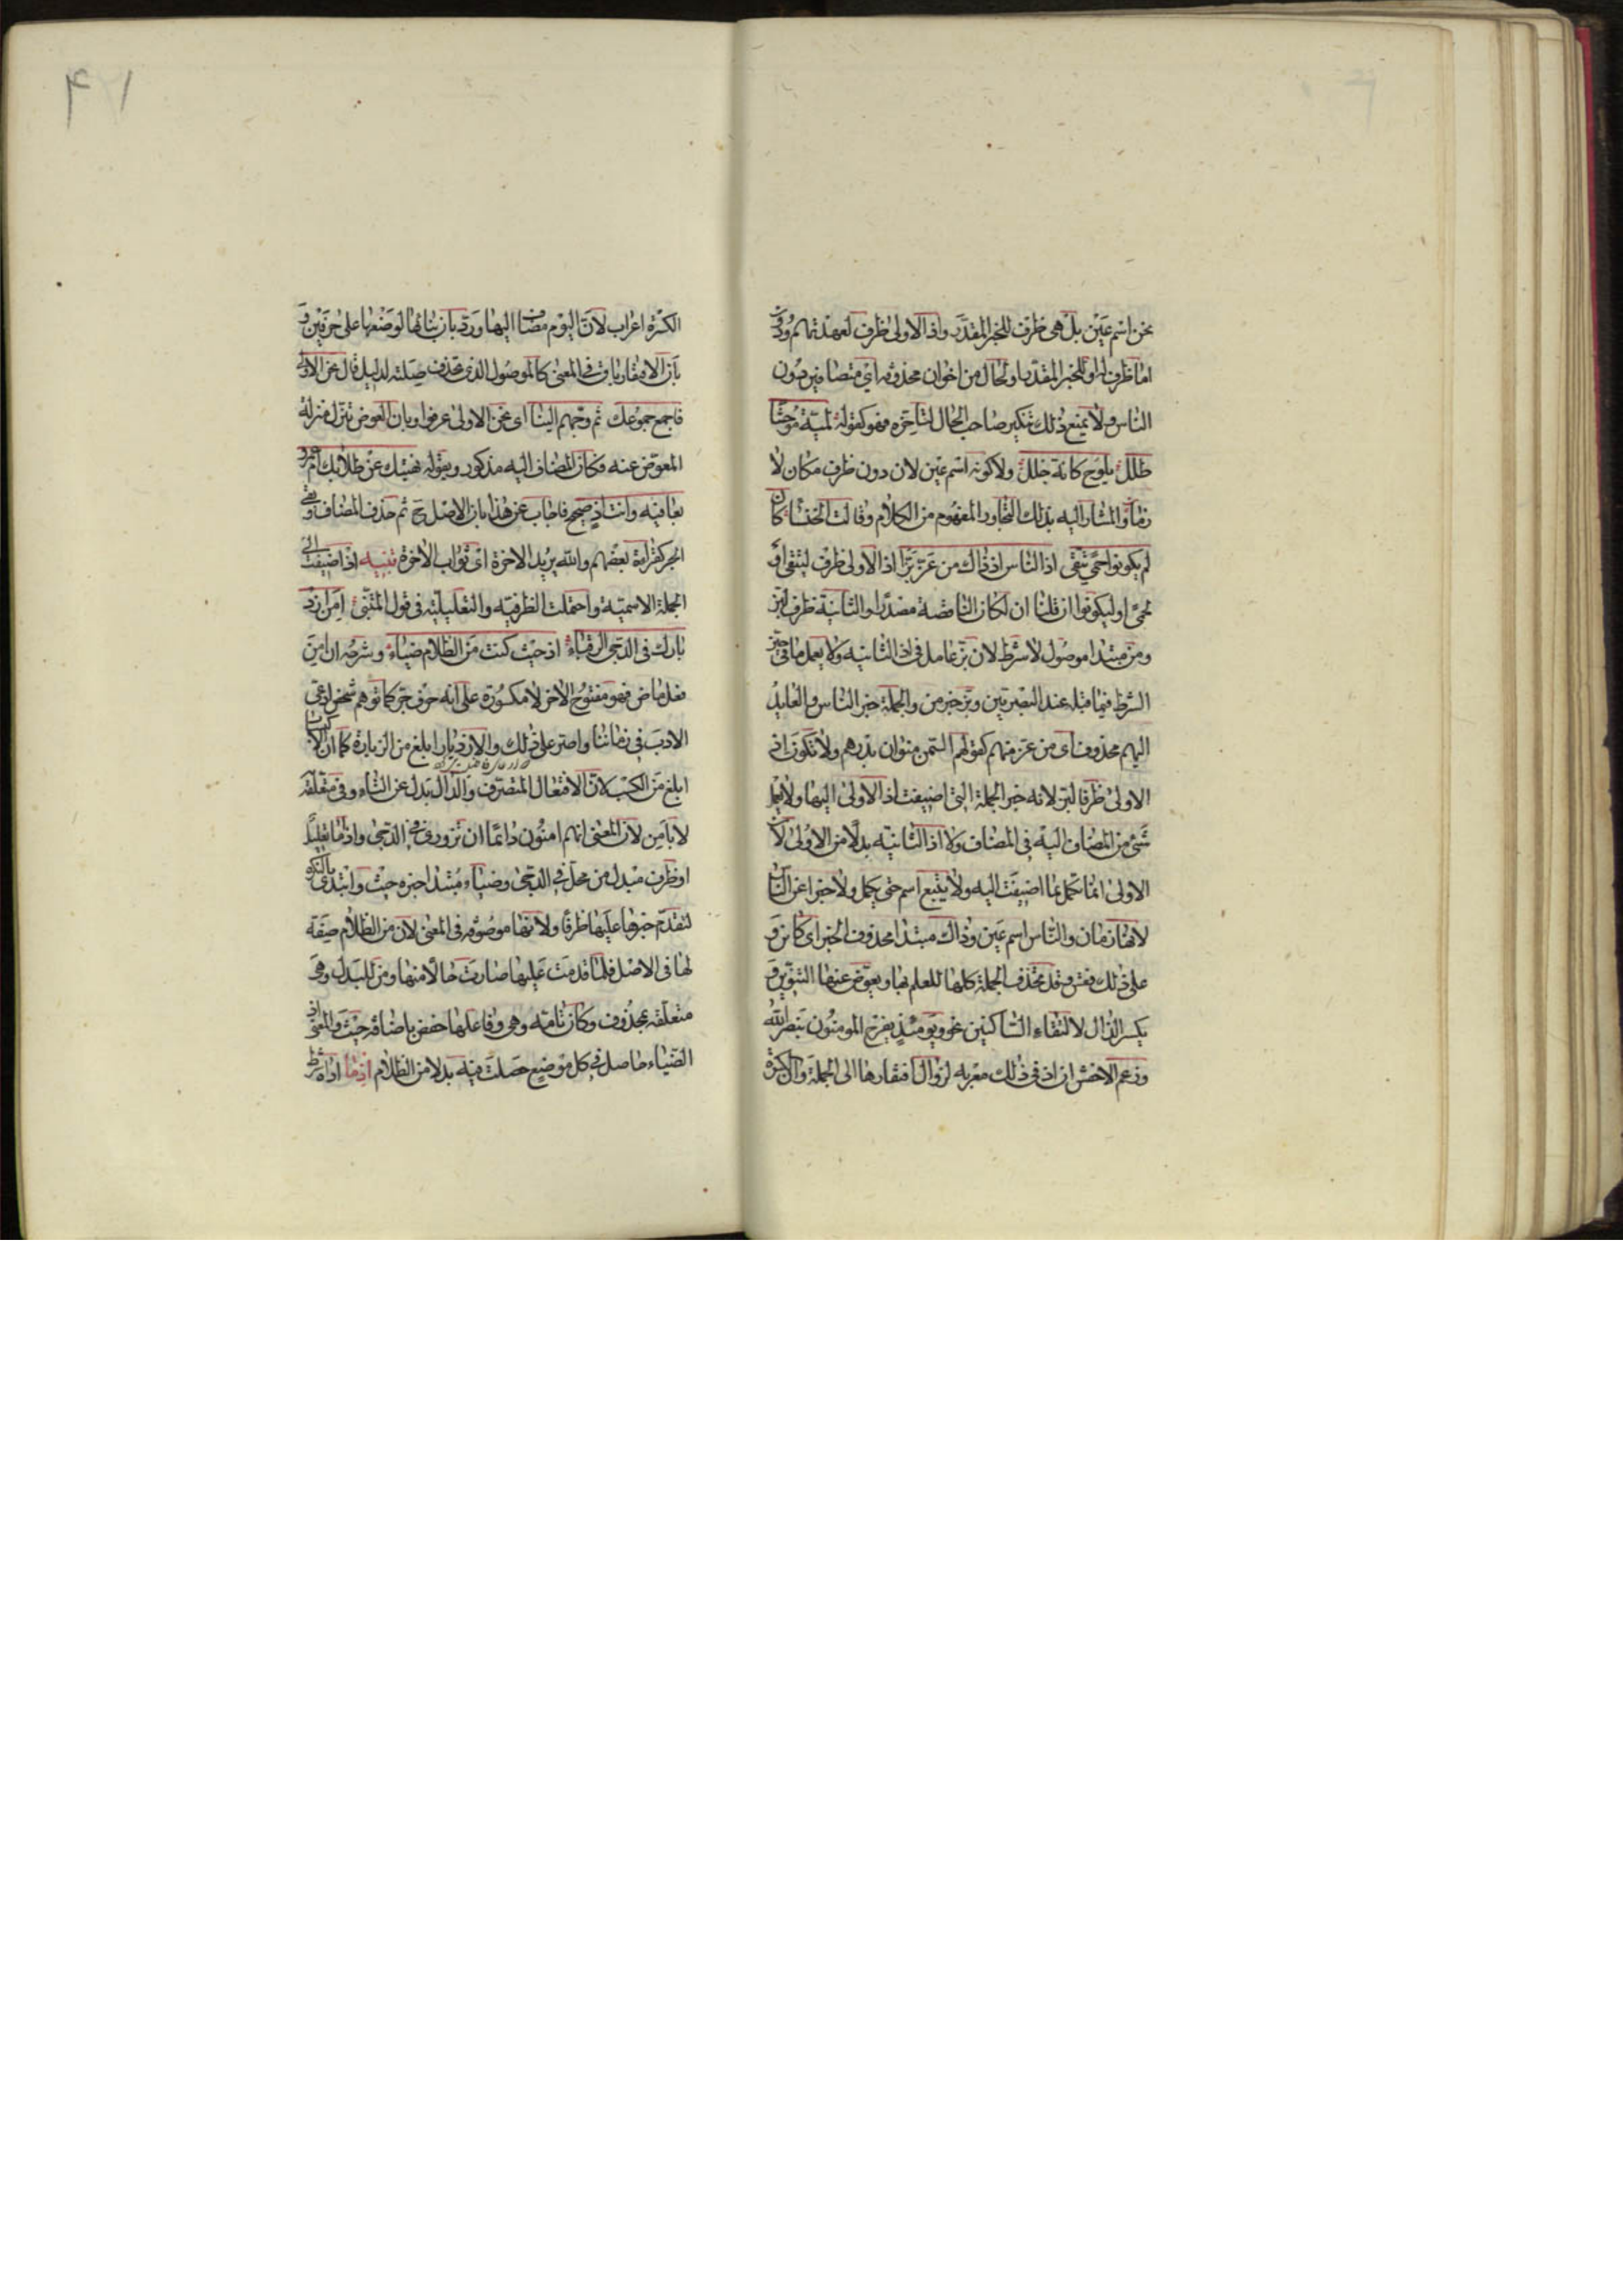 نحن اسم عين بل هى ظرف للخبر المقدر واذ الاولى ظرف لعهدتهم ودون
اما ظرف له او للخبر المقدر او لحال من اخوان محذوفه اى متصافين دون
الناس ولا يمنع ذلك تنكير صاحب الحال لتاخره فهو كقوله لمية موحشا
طلل يلوح كانه خلل ولا كونه اسم عين لان دون ظرف مكان لا
زمان والمشار اليه بذلك التجاور المفهوم من الكلام وقالت الخنساء كان
لم يكونوا حمى يتقى اذ الناس اذ ذاك من عزّ بزّا اذ الاولى ظرف ليتقى او
لحمى او ليكونوا ان قلنا ان لكان الناقصة مصدرا والثانية ظرف لبز
ومن مبتدا موصول لا شرط لان بزّ عامل فى اذ الثانيه ولا يعمل ما فى حيز
الشرط فيما قبله عند البصريين وبزّ خبر من والجملة خبر الناس والعايد
اليهم محذوف اى من عز منهم كقولهم السمن منوان بدرهم ولا تكون اذ
الاولى ظرفا لبزّ لانه خبر الجملة التى اضيفت اذ الاولى اليها ولا يعمل
شئ من المضاف اليه فى المضاف ولا اذ الثانيه بدلا من الاولى لان
الاولى انما تكمل بما اضيفت اليه ولا يتبع اسم حتى يكمل ولا خبرا عن الناس
لانها زمان والناس اسم عين وذاك مبتدا محذوف الخبر اى كائن و
على ذلك فقس وقد تحذف الجملة كلها للعلم بها ويعوض عنها التنوين و
يكسر الذال لالتقاء الساكنين نحو ويومئذ يفرح المومنون بنصر الله
وزعم الاخفش ان اذ فى ذلك معربه لزوال افتقارها الى الجملة وان الكسرة
الكسرة اعراب لان اليوم مضاف اليها ورد بان بنائها لوضعها على حرفين و
بان الافتقار باق فى المعنى كالموصول الذى تحذف صلته لدليل قال نحن الاولى
فاجمع جموعك ثم وجههم الينا اى نحن الاولى عرفوا وبان العوض تنزل منزلة
المعوض عنه فكان المضاف اليه مذكور وبقوله نهيتك عن طلابك ام عمرو
بعافيه وانت اذ صحيح فاجاب عن هذا بان الاصل ح ثم حذف المضاف وبقى
الجر كقراءة بعضهم والله يريد الاخرة اى ثواب الاخرة تنبيه اذ اضيفت الى
الجملة الاسمية واحتملت الظرفيه والتعليليه فى قول المتنبى امن ازد
يارك فى الدجى الرقباء اذ حيث كنت من الظلام ضياء وشرحه ان امن
فعل ماض فهو مفتوح الاخر لا مكسوره على انه حرف جر كما توهم شخص ادعى
الادب فى زماننا واصر على ذلك والازديار ابلغ من الزيارة كما ان الاكتساب
ابلغ من الكسب لان الافتعال للتصرف والدال بدل عن التاء وفى متعلقه
لا بامن لان المعنى انهم امنون دائما ان تزورى فى الدجى واذ اما تعليل
او ظرف مبدل من محل فى الدجى وضياء مبتدا خبره حيث وابتدى بالنكره
لتقدم خبرها عليها ظرفا ولانها موصوفه فى المعنى لان من الظلام صفة
لها فى الاصل فلما قدمت عليها صارت حالا منها ومن للبدل وهى
متعلقه بمحذوف وكان تامه وهى وفاعلها خفض باضافه حيث والمعنى اذ
الضياء حاصل فى كل موضع حصلت فيه بدلا من الظلام اذما اداه شرط